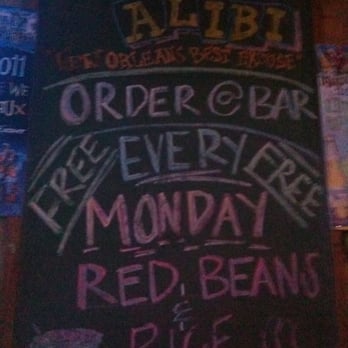 ALIBI
"NEW ORLEANS BEST EXCUSE"
ORDER @ BAR
FREE EVERY FREE
MONDAY
RED BEANS
&
RICE !!!
011
WE
AUX